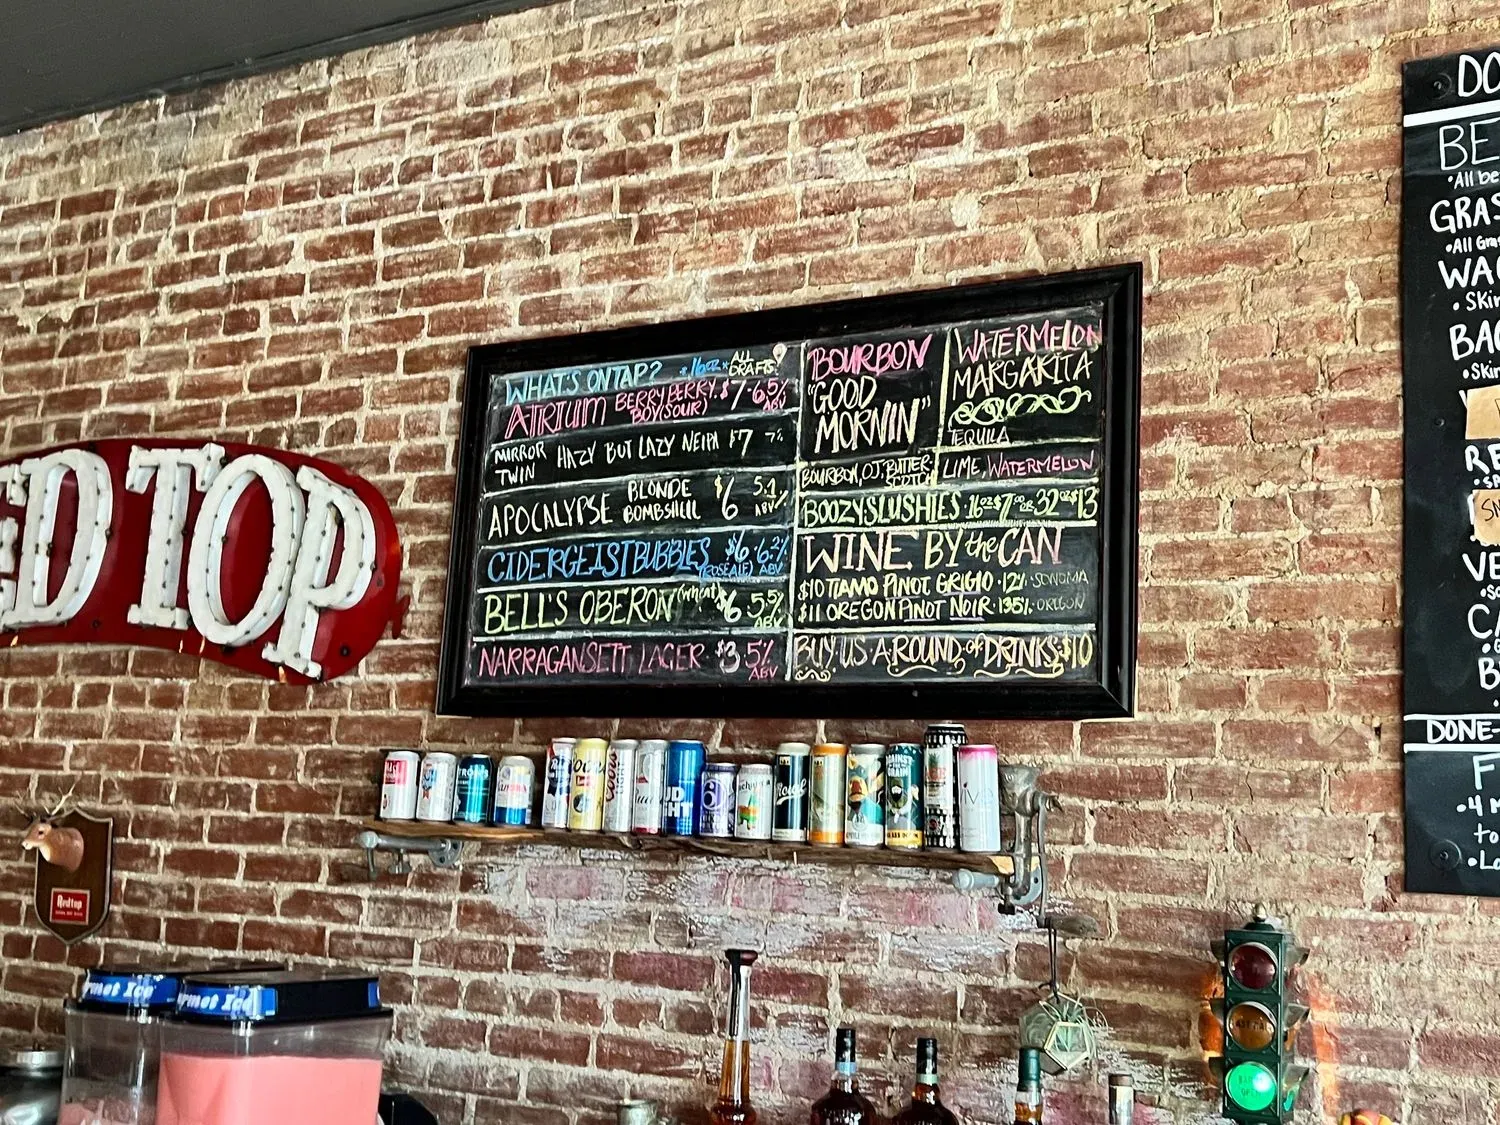 ED TOP
WHAT'S ON TAP? *16oz* ALL DRAFTS!
ATRIUM BERRY PERRY BOY (SOUR) $7 · 6.5% ABV
MIRROR TWIN HAZY BUT LAZY NEIPA $7 7%
APOCALYPSE BLONDE BOMBSHELL $6 5.1% ABV
CIDERGEIST BUBBLES (ROSÉ ALE) $6 6.2% ABV
BELL'S OBERON (wheat) $6 5.5% ABV
NARRAGANSETT LAGER $3 5% ABV
BOURBON
"GOOD
MORNIN"
BOURBON, OJ, BUTTER-
SCOTCH
WATERMELON
MARGARITA
TEQUILA
LIME, WATERMELON
BOOZY SLUSHIES 16oz $7.00 OR 32oz $13
WINE BY the CAN
$10 TIAMO PINOT GRIGIO · 12% · SONOMA
$11 OREGON PINOT NOIR · 13.5% · OREGON
BUY US A ROUND of DRINKS · $10
DO
BE
•All be
GRAS
•All Gra
WA
• Skin
BA
•Skin
RE
SN
VE
CA
B
DONE-
F
•4 M
to
•Lo
Coors
BUD
LIGHT
AGAINST
THE
GRAIN
Redtop
urmet Ice
urmet Ice